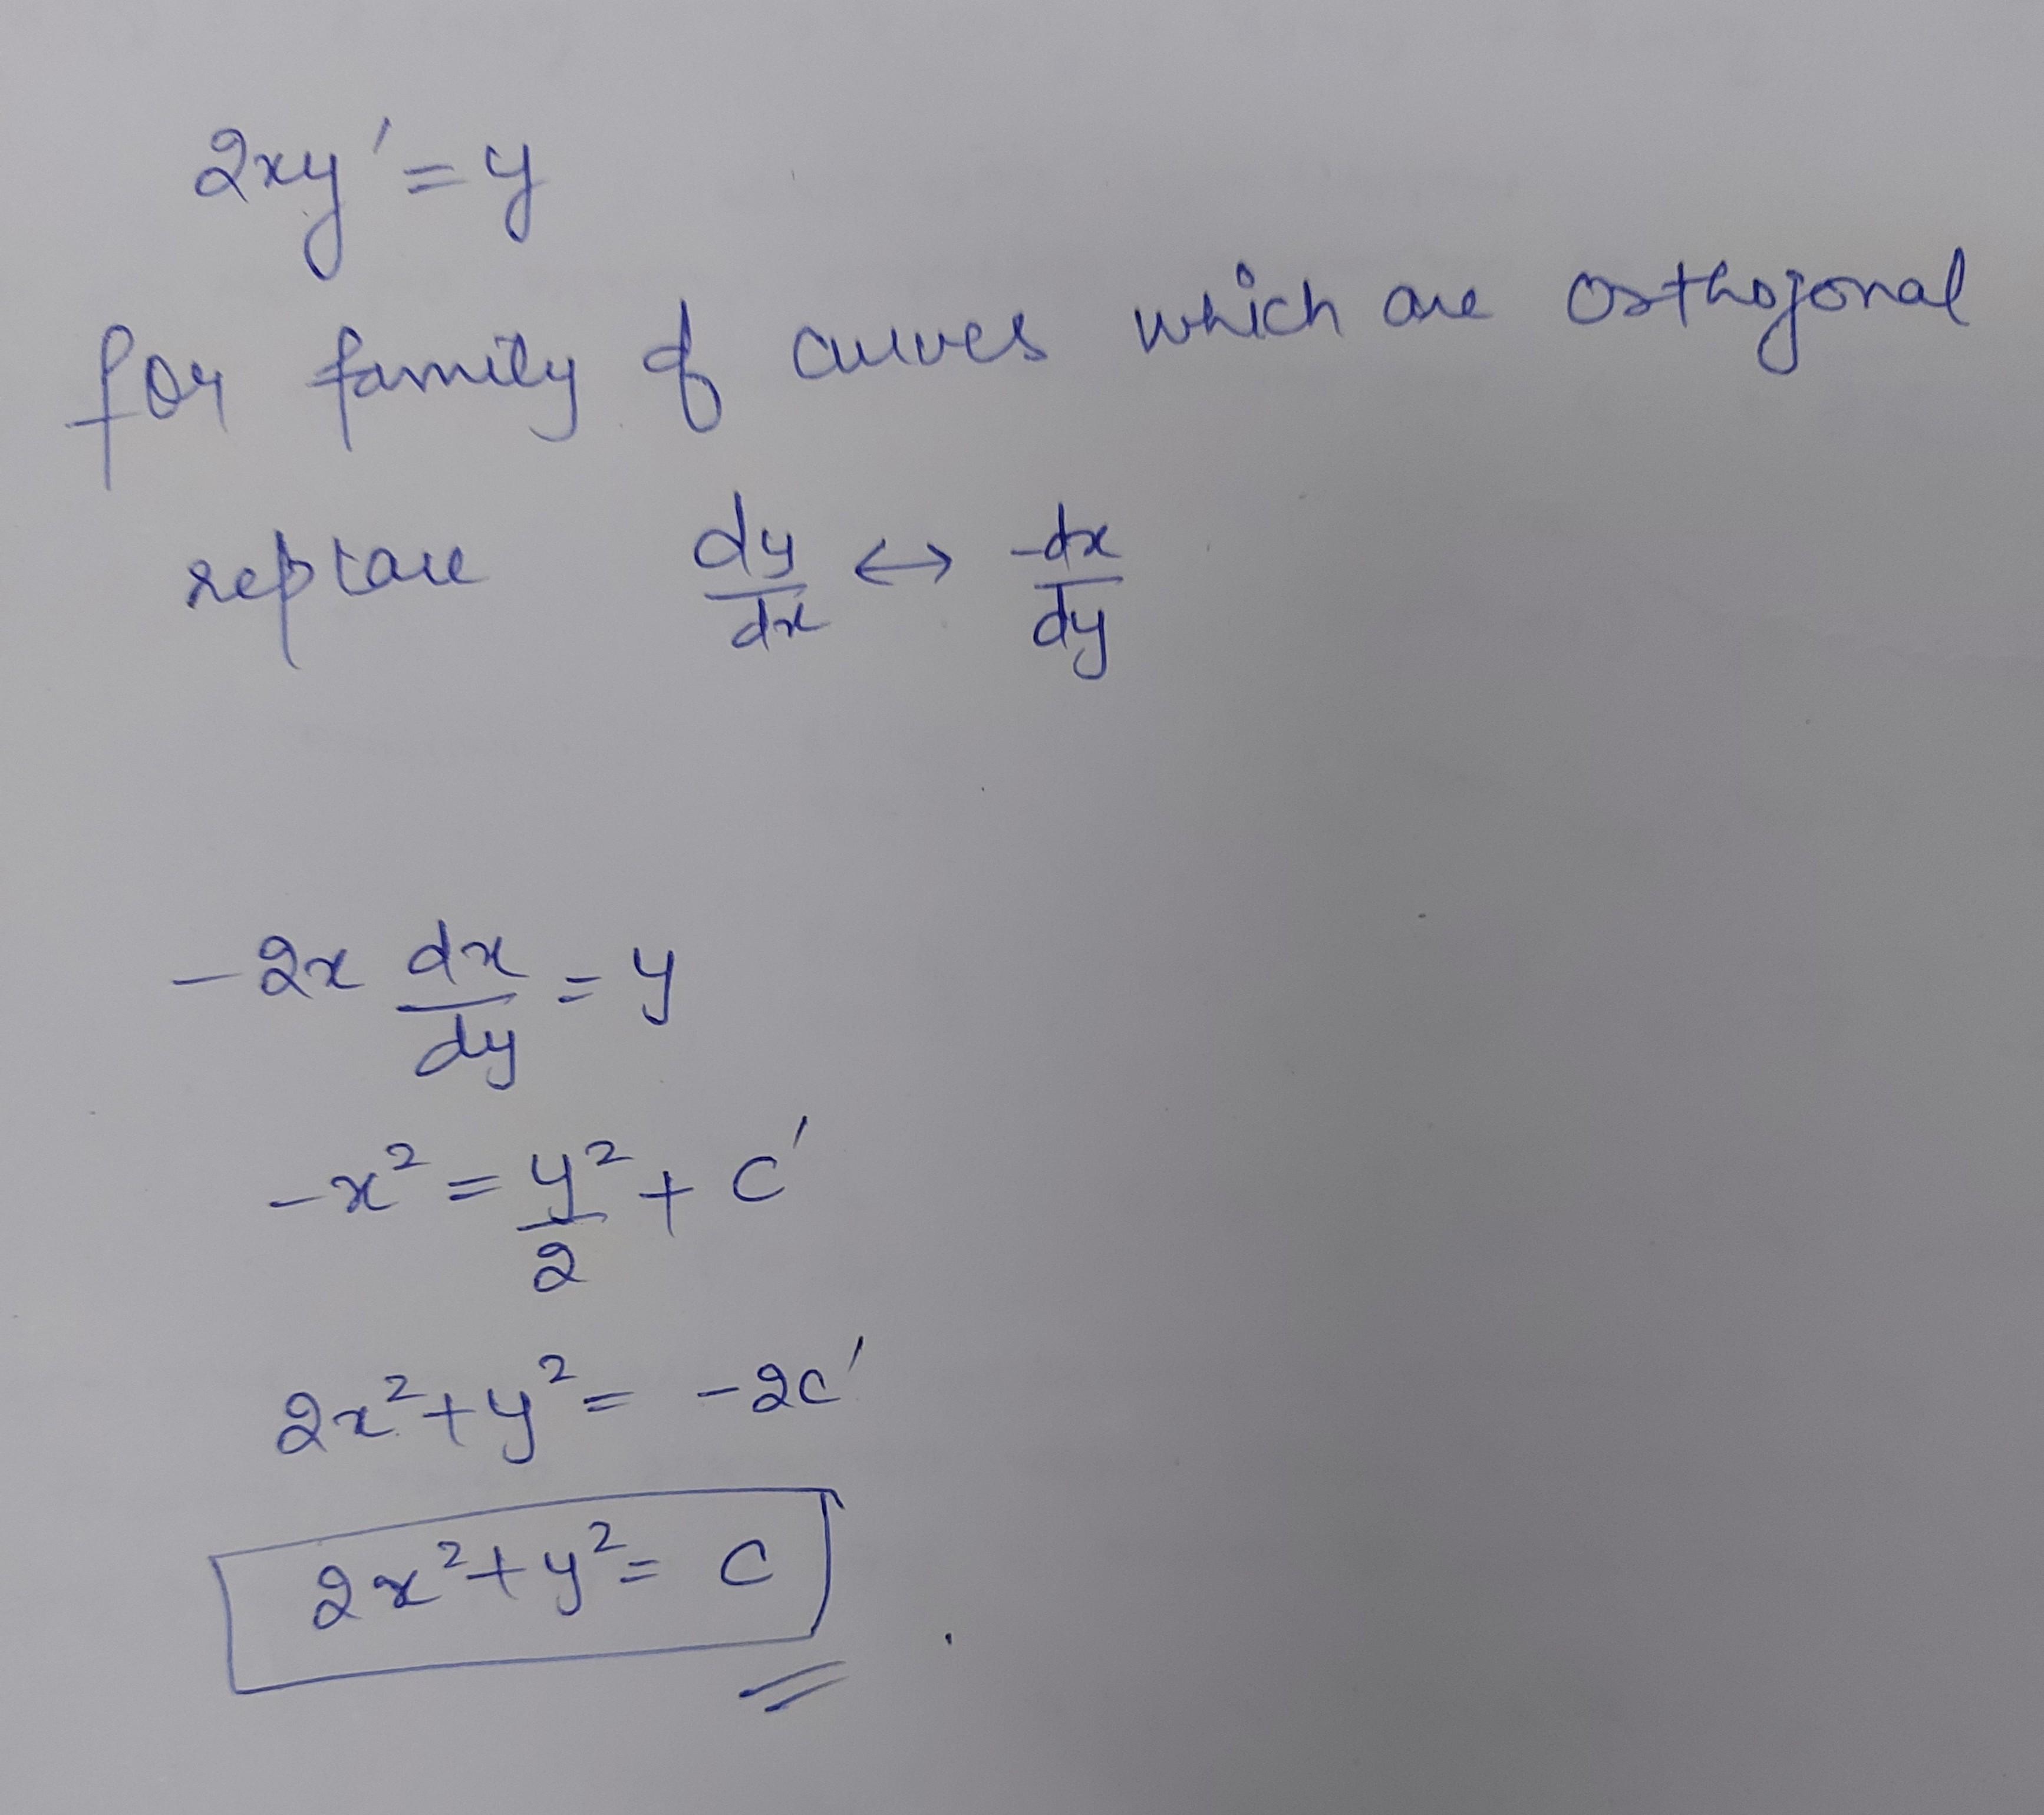 2xy' = y
for family of curves which are orthogonal
replace dy/dx ↔ -dx/dy
-2x dx/dy = y
-x² = y²/2 + c'
2x² + y² = -2c'
2x² + y² = c